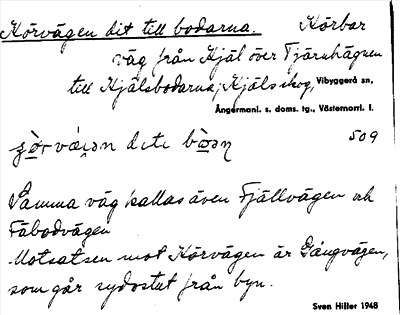 Körvägen dit till bodarna. Körbar
väg från Hjäl över Tjärnhägnen
till Hjälsbodarna, Hjäls skog, Vibyggerå sn,
Ångermanl. s. doms. tg., Västernorrl. l.
509
Samma väg kallas även Fjällvägen och
Fäbodvägen
Motsatsen mot Körvägen är Gångvägen,
som går sydost från byn.
Sven Hiller 1948